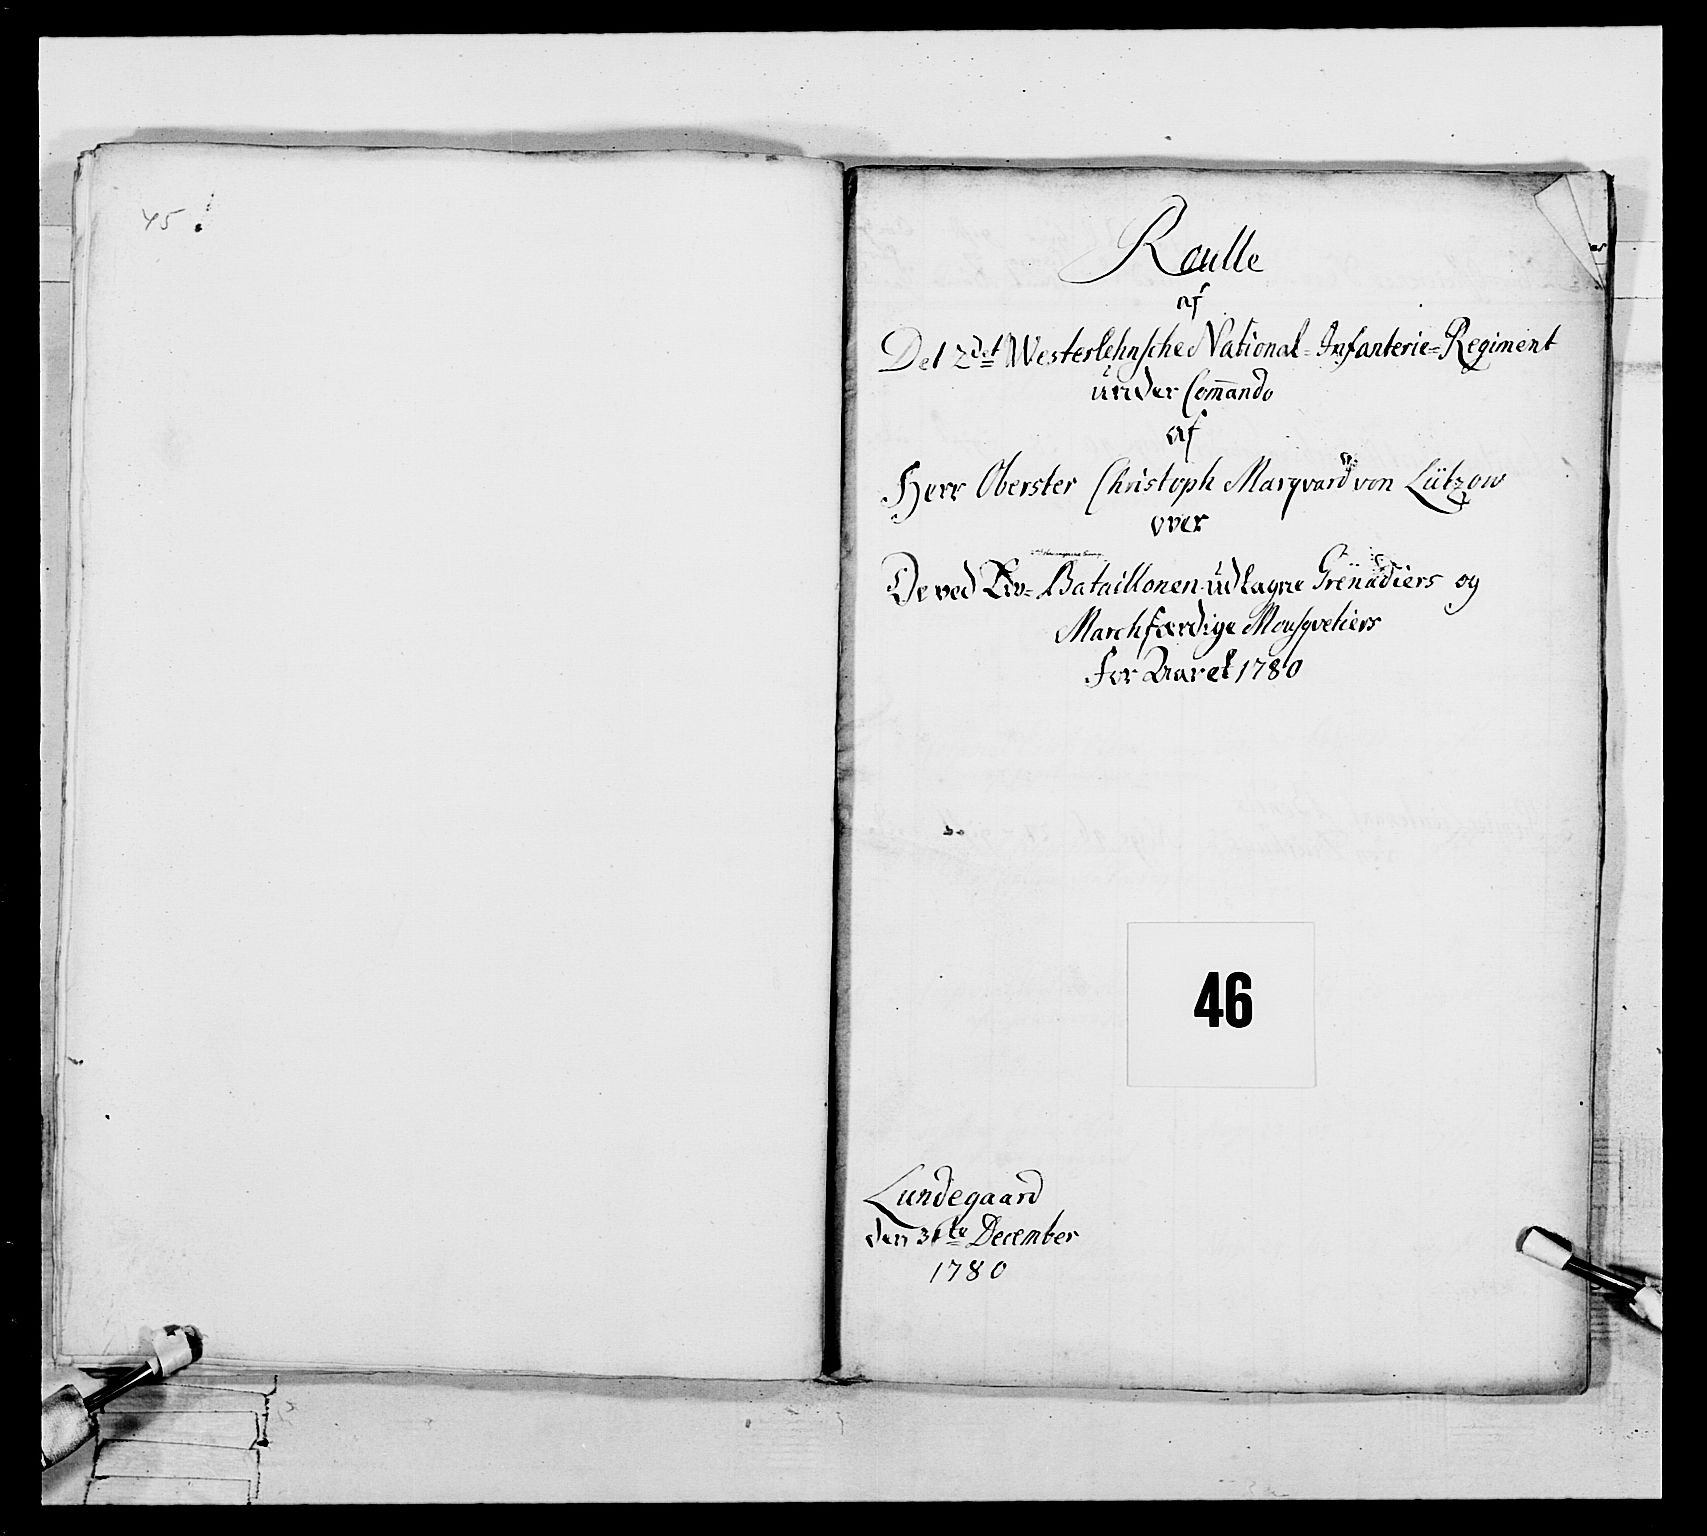 45
Roulle
af
Det 2det Westerlehnsche National-Infanterie-Regiment
under Com̄ando
af
Herr Oberster Christoph Marqvard von Lützow
over
De ved Liv-Bataillonen udtagne Grenadiers og
Marchfærdige Mousqvetiers
for Aaret 1780
46
Lundegaard
den 31te December
1780